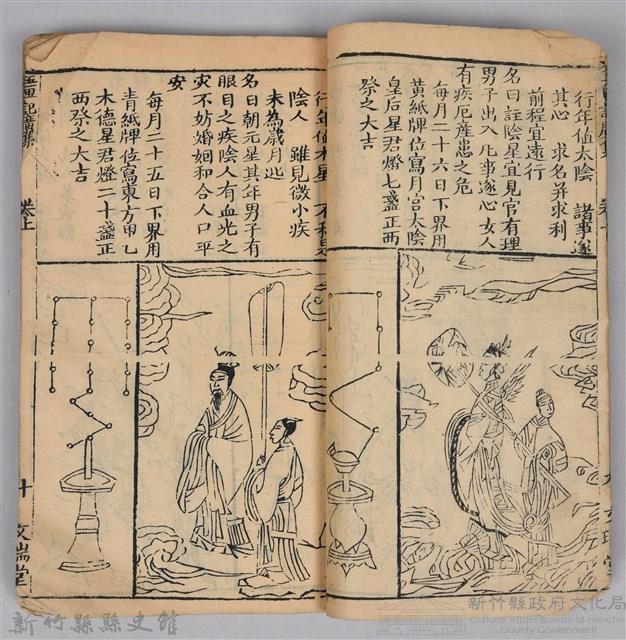 行年值太陰 諸事遂
其心 求名并求利
前程宜遠行
名曰註陰星宜見官有理
男子出入凡事遂心女人
有疾厄產患之危
每月二十六日下界用
黃紙牌位寫月宮太陰
皇后星君燈七盞正西
祭之大吉
行年值木星 不利是
陰人 雖見微小疾
未為歲月迍
名曰朝元星其年男子有
眼目之疾陰人有血光之
災不妨婚姻和合人口平
安
每月二十五日下界用
青紙牌位寫東方甲乙
木德星君燈二十盞正
西祭之大吉
玉匣記廣集
卷上
十
文瑞堂
新竹縣縣史館
新竹縣政府文化局
Cultural Affairs Bureau of Hsinchu
County Government